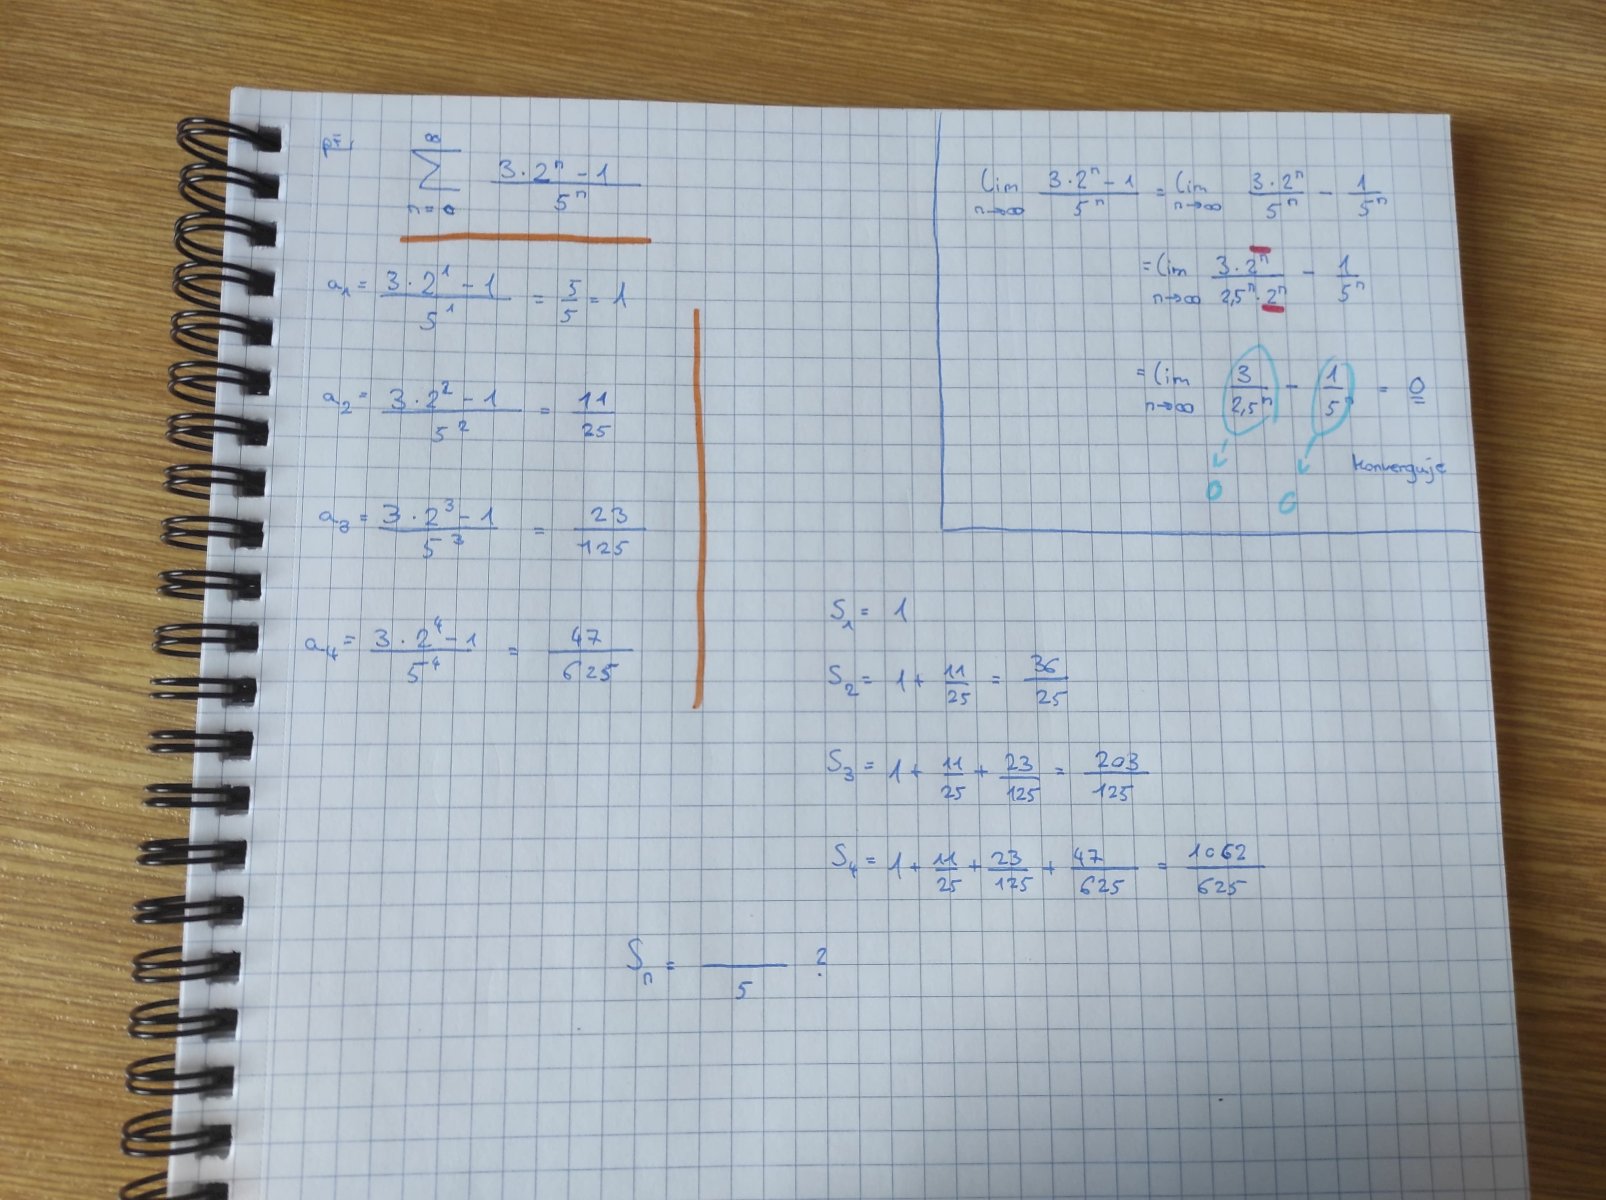 Př.
∞
∑ (3·2ⁿ - 1)/5ⁿ
n=0
a₁ = (3·2¹ - 1)/5¹ = 5/5 = 1
a₂ = (3·2² - 1)/5² = 11/25
a₃ = (3·2³ - 1)/5³ = 23/125
a₄ = (3·2⁴ - 1)/5⁴ = 47/625
lim n→∞ (3·2ⁿ - 1)/5ⁿ = lim n→∞ (3·2ⁿ)/5ⁿ - 1/5ⁿ
= lim n→∞ (3·2ⁿ)/(2,5ⁿ·2ⁿ) - 1/5ⁿ
= lim n→∞ 3/2,5ⁿ - 1/5ⁿ = 0
0 0
konverguje
S₁ = 1
S₂ = 1 + 11/25 = 36/25
S₃ = 1 + 11/25 + 23/125 = 203/125
S₄ = 1 + 11/25 + 23/125 + 47/625 = 1062/625
Sₙ = ——/5 ?